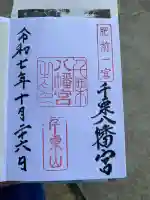 肥前一宮
千栗八幡宮
令和七年十月二十六日